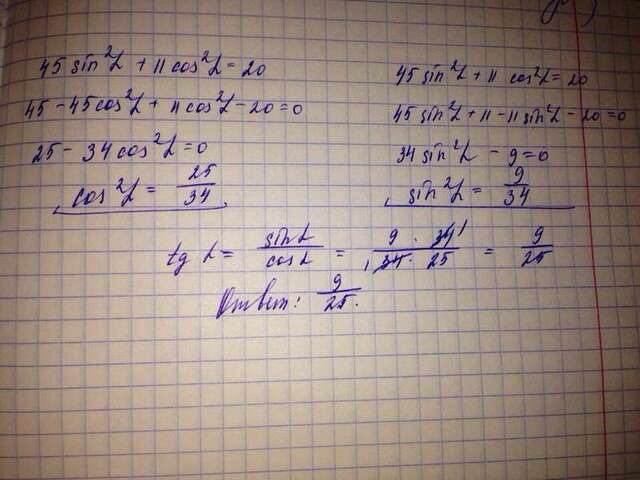 45 sin²α + 11 cos²α = 20
45 - 45cos²α + 11cos²α - 20 = 0
25 - 34cos²α = 0
cos²α = 25/34
45 sin²α + 11 cos²α = 20
45 sin²α + 11 - 11 sin²α - 20 = 0
34 sin²α - 9 = 0
sin²α = 9/34
tg α = sinα/cosα = 9 · 34¹/₁34 · 25 = 9/25
Ответ: 9/25.